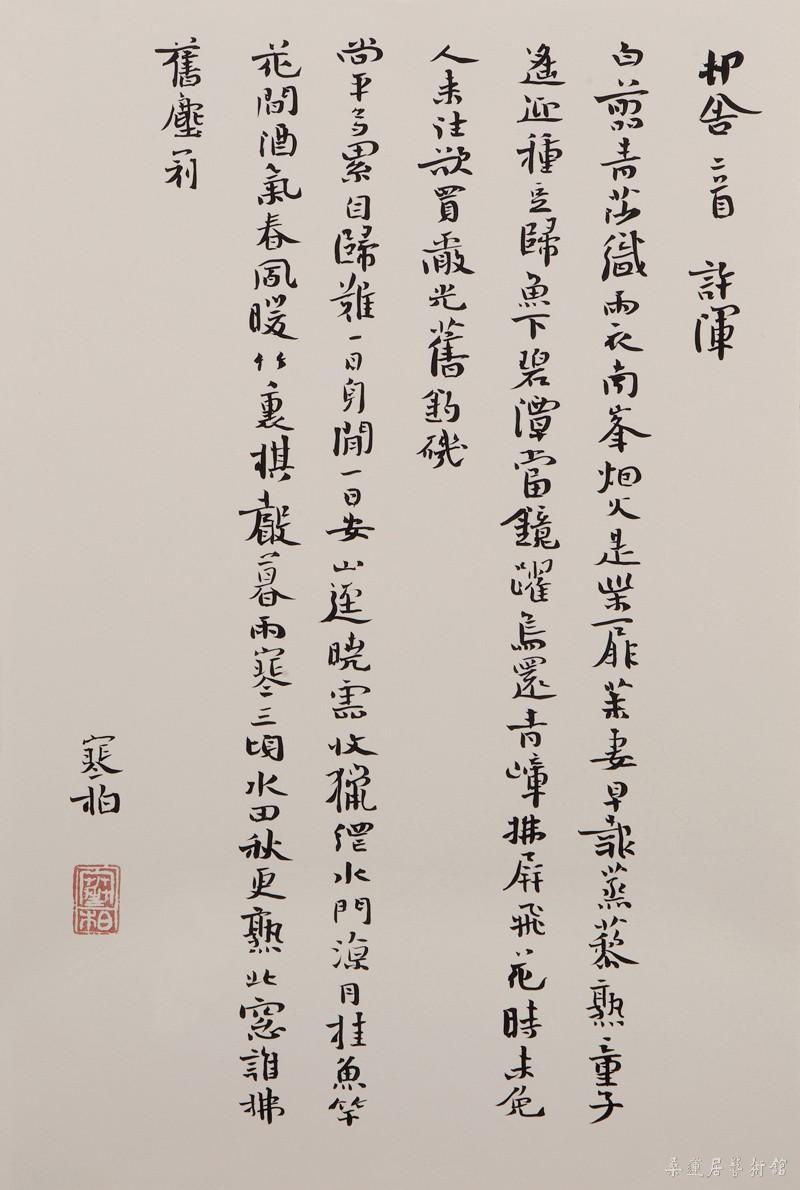 村舍二首 許渾
自剪青莎織雨衣南峯烟火是柴扉萊妻早報蒸藜熟童子
遙迎種豆歸魚下碧潭當鏡躍鳥還青嶂拂屏飛花時未免
人来往欲買嚴光舊釣磯
尚平多累自歸難一日身閒一日安山逕曉雲收獵網水門凉月挂魚竿
花間酒氣春風暖竹裏棋聲暮雨寒三頃水田秋更熟北窓誰拂
舊塵冠
寒柏
寒柏
桑蓮居藝術館